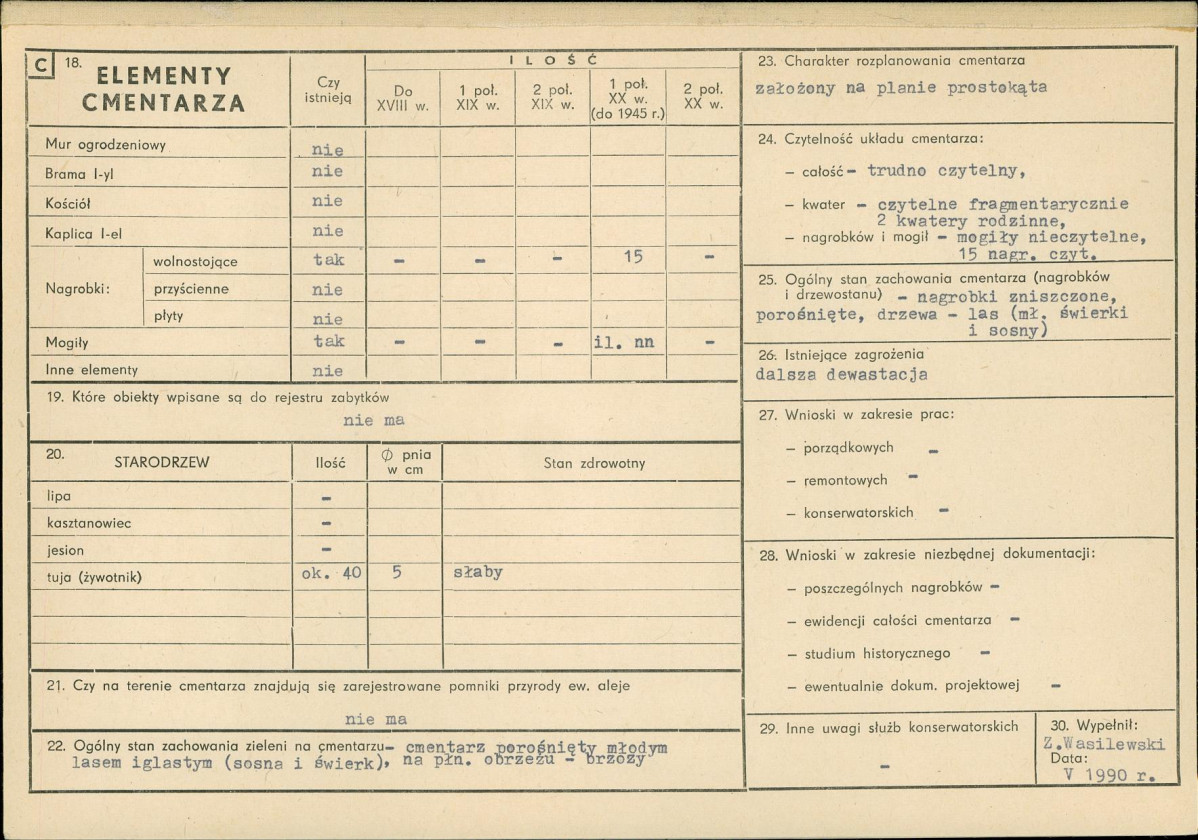 C 18. ELEMENTY CMENTARZA
Czy istnieją
ILOŚĆ
Do XVIII w.
1 poł. XIX w.
2 poł. XIX w.
1 poł. XX w. (do 1945 r.)
2 poł. XX w.
Mur ogrodzeniowy nie
Brama I-yl nie
Kościół nie
Kaplica I-el nie
Nagrobki:
wolnostojące tak - - - 15 -
przyścienne nie
płyty nie
Mogiły tak - - - il. nn -
Inne elementy nie
19. Które obiekty wpisane są do rejestru zabytków
nie ma
20. STARODRZEW Ilość Ø pnia w cm Stan zdrowotny
lipa -
kasztanowiec -
jesion -
tuja (żywotnik) ok. 40 5 słaby
21. Czy na terenie cmentarza znajdują się zarejestrowane pomniki przyrody ew. aleje
nie ma
22. Ogólny stan zachowania zieleni na cmentarzu- cmentarz porośnięty młodym
lasem iglastym (sosna i świerk), na płn. obrzeżu - brzozy
23. Charakter rozplanowania cmentarza
założony na planie prostokąta
24. Czytelność układu cmentarza:
– całość- trudno czytelny,
– kwater - czytelne fragmentarycznie
2 kwatery rodzinne,
– nagrobków i mogił - mogiły nieczytelne,
15 nagr. czyt.
25. Ogólny stan zachowania cmentarza (nagrobków
i drzewostanu) - nagrobki zniszczone,
porośnięte, drzewa - las (mł. świerki
i sosny)
26. Istniejące zagrożenia
dalsza dewastacja
27. Wnioski w zakresie prac:
– porządkowych -
– remontowych -
– konserwatorskich -
28. Wnioski w zakresie niezbędnej dokumentacji:
– poszczególnych nagrobków -
– ewidencji całości cmentarza -
– studium historycznego -
– ewentualnie dokum. projektowej -
29. Inne uwagi służb konserwatorskich
-
30. Wypełnił:
Z.Wasilewski
Data:
V 1990 r.